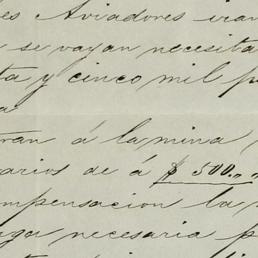 les Aviadores iran
se vayan necesita
ta y cinco mil p
a
ran á la mina
arios de á $ 500.
mpensacion la
ga necesaria p